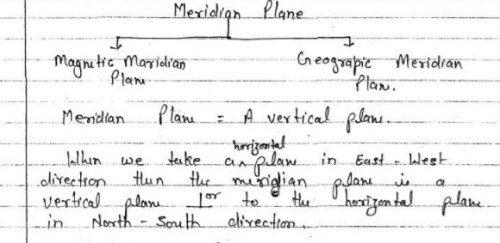 Meridian Plane
Magnetic Maridian Geograpic Meridian
Plane Plane.
Meridian Plane = A vertical plane.
horizontal
When we take a ^ plane in East - West
direction then the meridian plane is a
vertical plane ⊥or to the horizontal plane
in North - South direction.